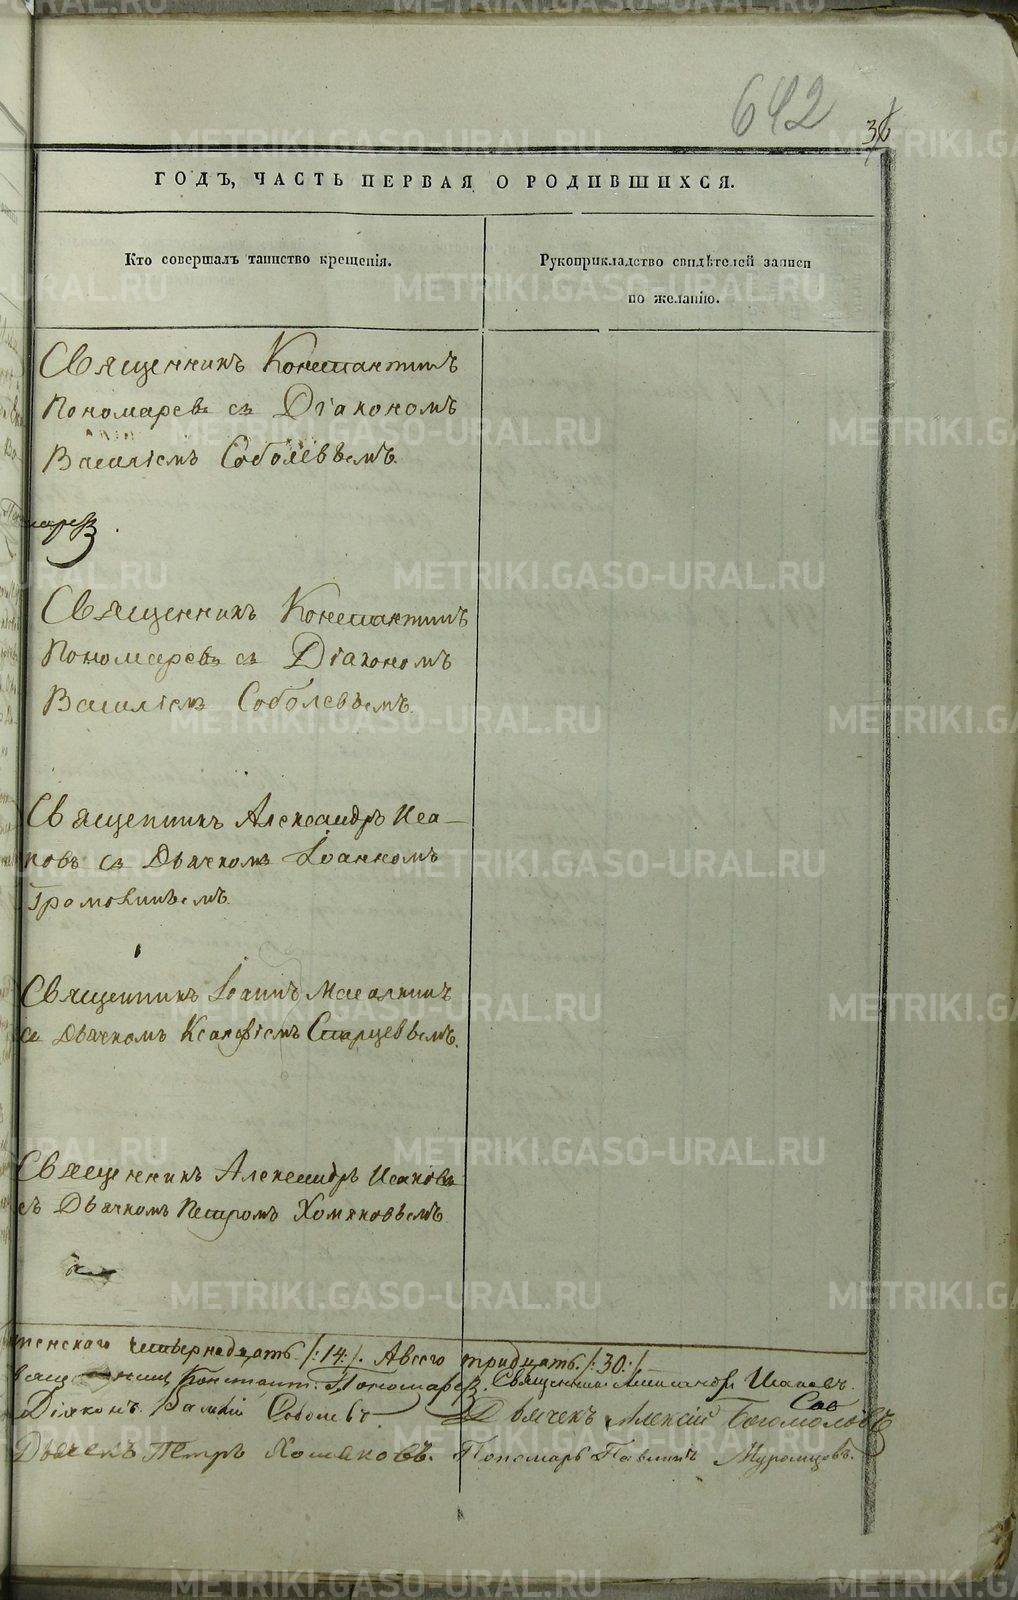 642
38
ГОДЪ, ЧАСТЬ ПЕРВАЯ О РОДИВШИХСЯ.
Кто совершалъ таинство крещенія.
Рукоприкладство свидѣтелей записи
по желанію.
Священникъ Констант҃инъ
Пономаревъ съ Діакономъ
Василіемъ Соболевъемъ.
маревъ.
Священникъ Константинъ
Пономаревъ съ Діакономъ
Василіемъ Соболевъемъ
Священникъ Александръ Иса-
ковъ съ Дьячкомъ Іоанномъ
Громовинъемъ.
Священникъ Іоаннъ Масалкинъ
съ Дьячкомъ Ксанфіемъ Старцевъемъ.
Священникъ Александръ Исаковъ
съ Дьячкомъ Петромъ Хомяковъемъ
женскаго четырнадцать /:14:/. А всего тридцать /:30:/
Констант: Пономаревъ. Священникъ Александръ Исаковъ.
Діаконъ Василій Соболевъ. Дьячекъ Алексій Богомоловъ
Дьячекъ Петръ Хомяковъ. Пономарь Павлинъ Муромцовъ.
METRIKI.GASO-URAL.RU